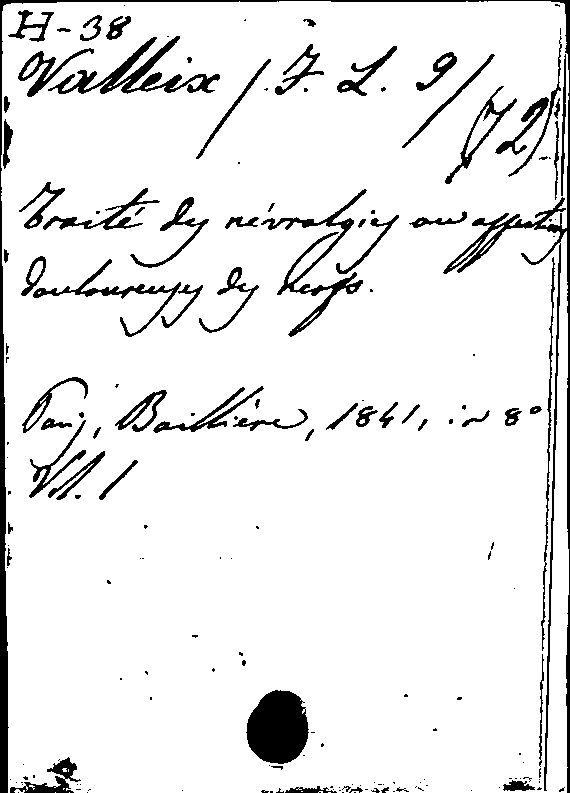 H-38
Valleix (F. L. I)
(72)
Traité des névralgies ou affections
douloureuses des nerfs.
Paris, Baillière, 1841, in 8°
Vol. 1